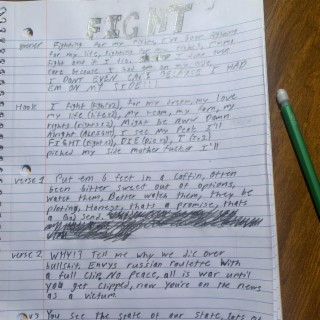 FIGHT
Fighting for my rights, I've been fighting
for my life, fighting for my
fight and if I die,
care because I had em on my side,
I DONT EVEN CARE IF I DIE I HAD
EM ON MY SIDE!!!
Hook I fight (fights), for my dream, my love
my life (life's), My team, my fam, my
rights (rights), Might be beat Down
Alright (Alright), I see my fear I'll
FIGHT (fights), DIE (dies), I
picked my side mother fucker I'll
verse 1 Put em 6 feet in a coffin, often
been bitter sweet out of options,
watch them, Better watch them, they be
ploting, Honest, thats a promise, thats
a God send.
verse 2 WHY!? Tell me why we die over
bullshit, Envys russian roulette with
a full clip, No Peace, all is war until
you get clipped, now you're on the news
as a victum.
You see the state of our state, lots of